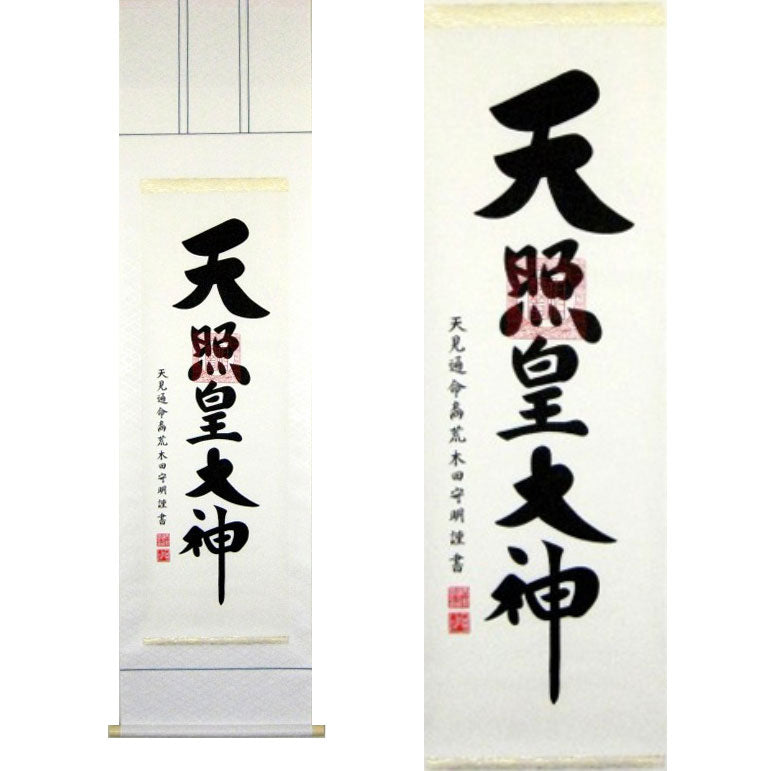 天照皇大神
天見通命裔荒木田守明謹書
天照皇大神
天見通命裔荒木田守明謹書